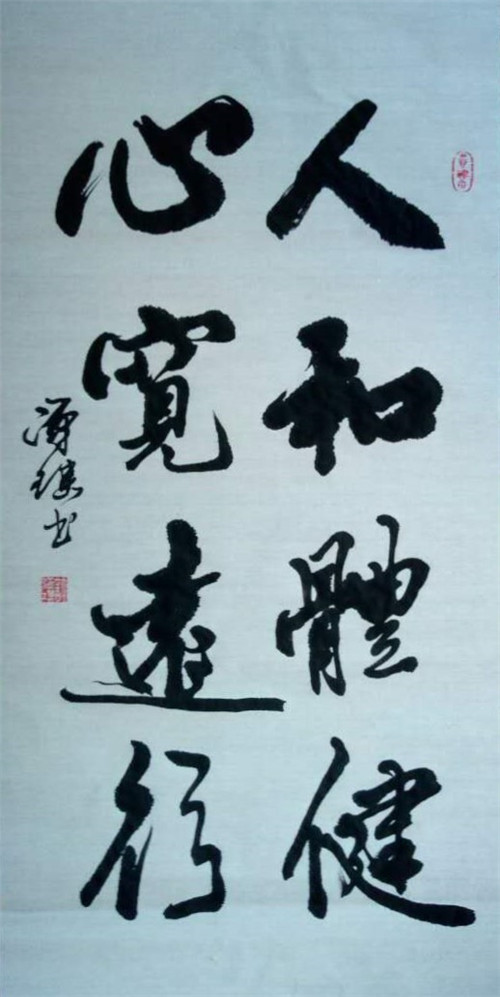 人和體健
心寬遠行